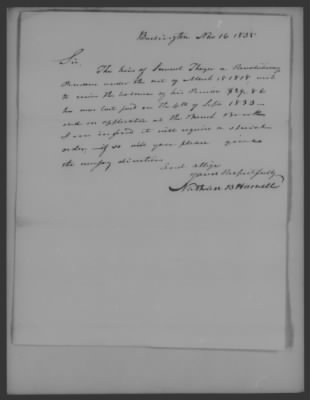 Burlington Nov 16 1835
Sir,
The heirs of Samuel Thayer a Revolutionary
Pensioner under the act of March 18 1818 wish
to receive the balance of his Pension
was last paid on the 4th of Sept 1833
and on application at the Branch Bank
I am informed it will require a special
order. if so will you please give
the necessary direction
and oblige
yours Respectfully
Nathan B Haswell